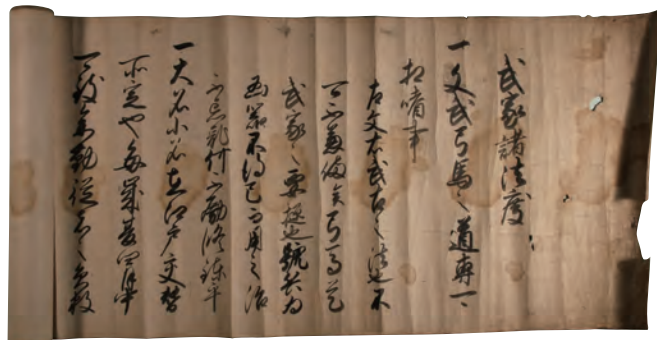 武家諸法度
一文武弓馬之道専可
相嗜事
左文右武古之法也不
可不兼備矣弓馬是
武家之要枢也號兵為
凶器不得已而用之治
不忘乱何不勵修錬乎
一大名小名在江戸交替
所定也毎歳夏四月中
可致参勤従者之員数